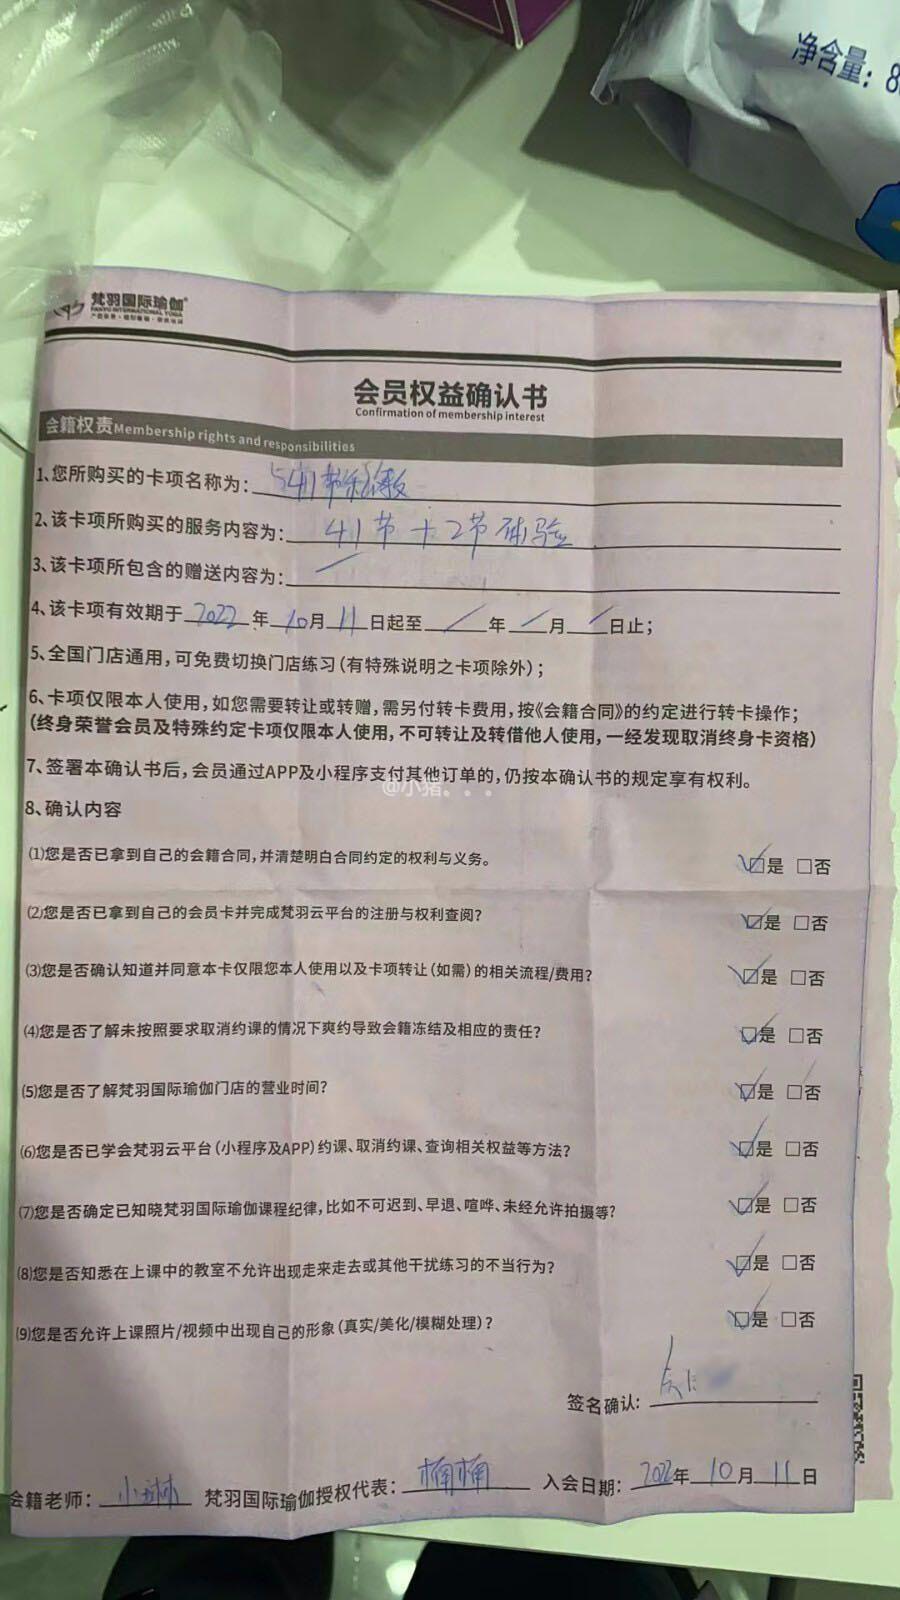 净含量：8
梵羽国际瑜伽®
FANYU INTERNATIONAL YOGA
会员权益确认书
Confirmation of membership interest
会籍权责Membership rights and responsibilities
1、您所购买的卡项名称为：41节私教
2、该卡项所购买的服务内容为：41节+2节体验
3、该卡项所包含的赠送内容为：/
4、该卡项有效期于2022年10月11日起至/年/月/日止；
5、全国门店通用，可免费切换门店练习（有特殊说明之卡项除外）；
6、卡项仅限本人使用，如您需要转让或转赠，需另付转卡费用，按《会籍合同》的约定进行转卡操作；
（终身荣誉会员及特殊约定卡项仅限本人使用，不可转让及转借他人使用，一经发现取消终身卡资格）
7、签署本确认书后，会员通过APP及小程序支付其他订单的，仍按本确认书的规定享有权利。
@小猪。。。
8、确认内容
⑴您是否已拿到自己的会籍合同，并清楚明白合同约定的权利与义务。 ☑是 □否
⑵您是否已拿到自己的会员卡并完成梵羽云平台的注册与权利查阅？ ☑是 □否
⑶您是否确认知道并同意本卡仅限您本人使用以及卡项转让（如需）的相关流程/费用？ ☑是 □否
⑷您是否了解未按照要求取消约课的情况下爽约导致会籍冻结及相应的责任？ ☑是 □否
⑸您是否了解梵羽国际瑜伽门店的营业时间？ ☑是 □否
⑹您是否已学会梵羽云平台（小程序及APP）约课、取消约课、查询相关权益等方法？ ☑是 □否
⑺您是否确定已知晓梵羽国际瑜伽课程纪律，比如不可迟到、早退、喧哗、未经允许拍摄等？ ☑是 □否
⑻您是否知悉在上课中的教室不允许出现走来走去或其他干扰练习的不当行为？ ☑是 □否
⑼您是否允许上课照片/视频中出现自己的形象（真实/美化/模糊处理）？ ☑是 □否
签名确认：
会籍老师：小琳 梵羽国际瑜伽授权代表：楠楠 入会日期：2022年10月11日